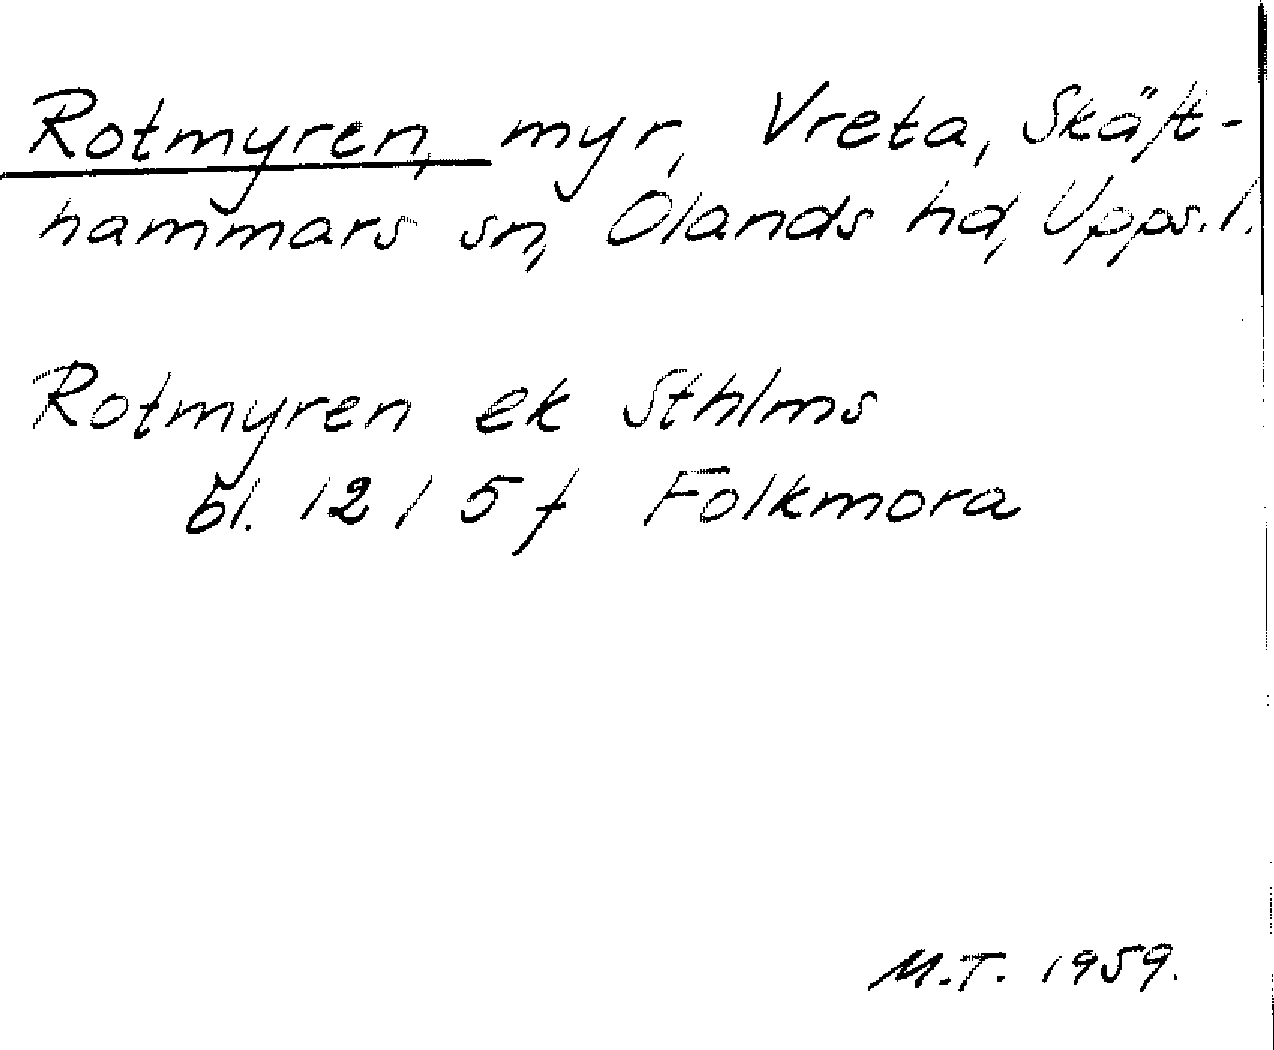 Rotmyren, myr, Vreta, Skäft-
hammars sn, Olands hd, Upps.l.
Rotmyren ek Sthlms
bl. 12 / 5 f Folkmora
M.T. 1959.